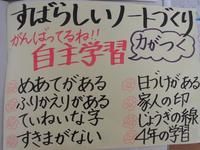 すばらしいノートづくり
がんばってるね!!
自主学習
力がつく
めあてがある
ふりかえりがある
ていねいな字
すきまがない
日づけがある
家人の印
じょうぎの線
4年の学習